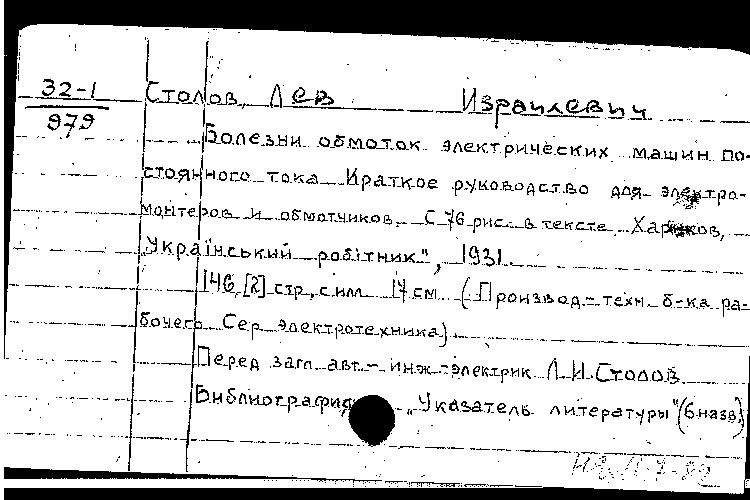 32-1
979
Столов, Лев Израилевич
Болезни обмоток электрических машин по-
стоянного тока Краткое руководство для электро-
монтеров и обмотчиков. С 76 рис. в тексте Харьков,
„Український робітник", 1931.
146, [2] стр., с илл. 17 см (Производ.-техн. б-ка ра-
бочего Сер электротехника)
Перед загл. авт.- инж-электрик Л.И.Столов
Библиография „Указатель литературы" (6 назв.)